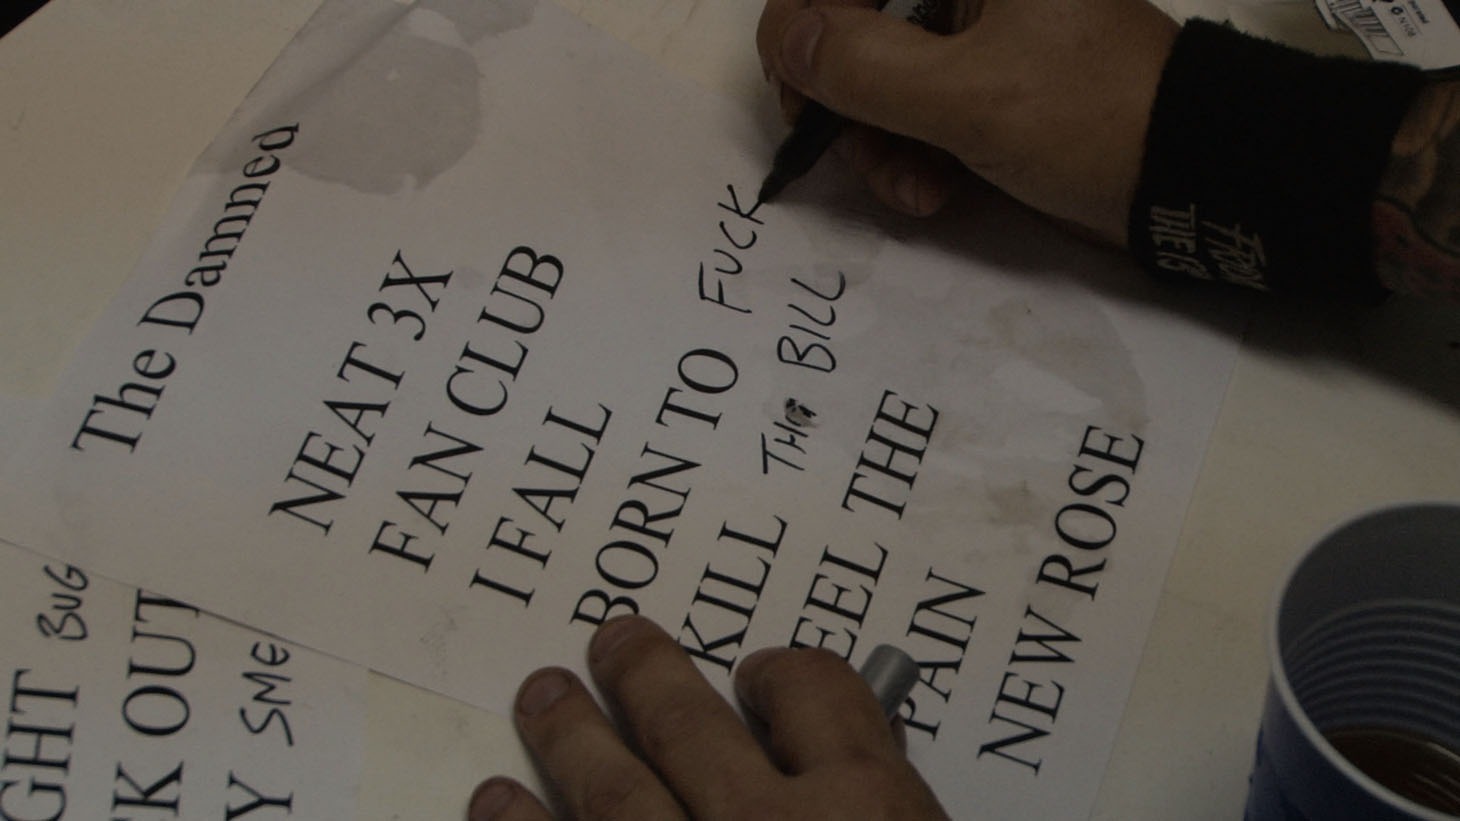 The Damned
NEAT 3X
FAN CLUB
I FALL
BORN TO FUCK
KILL THE BILL
EEL THE
PAIN
NEW ROSE
GHT BUG
CK OUT
Y SME
FROM
THE